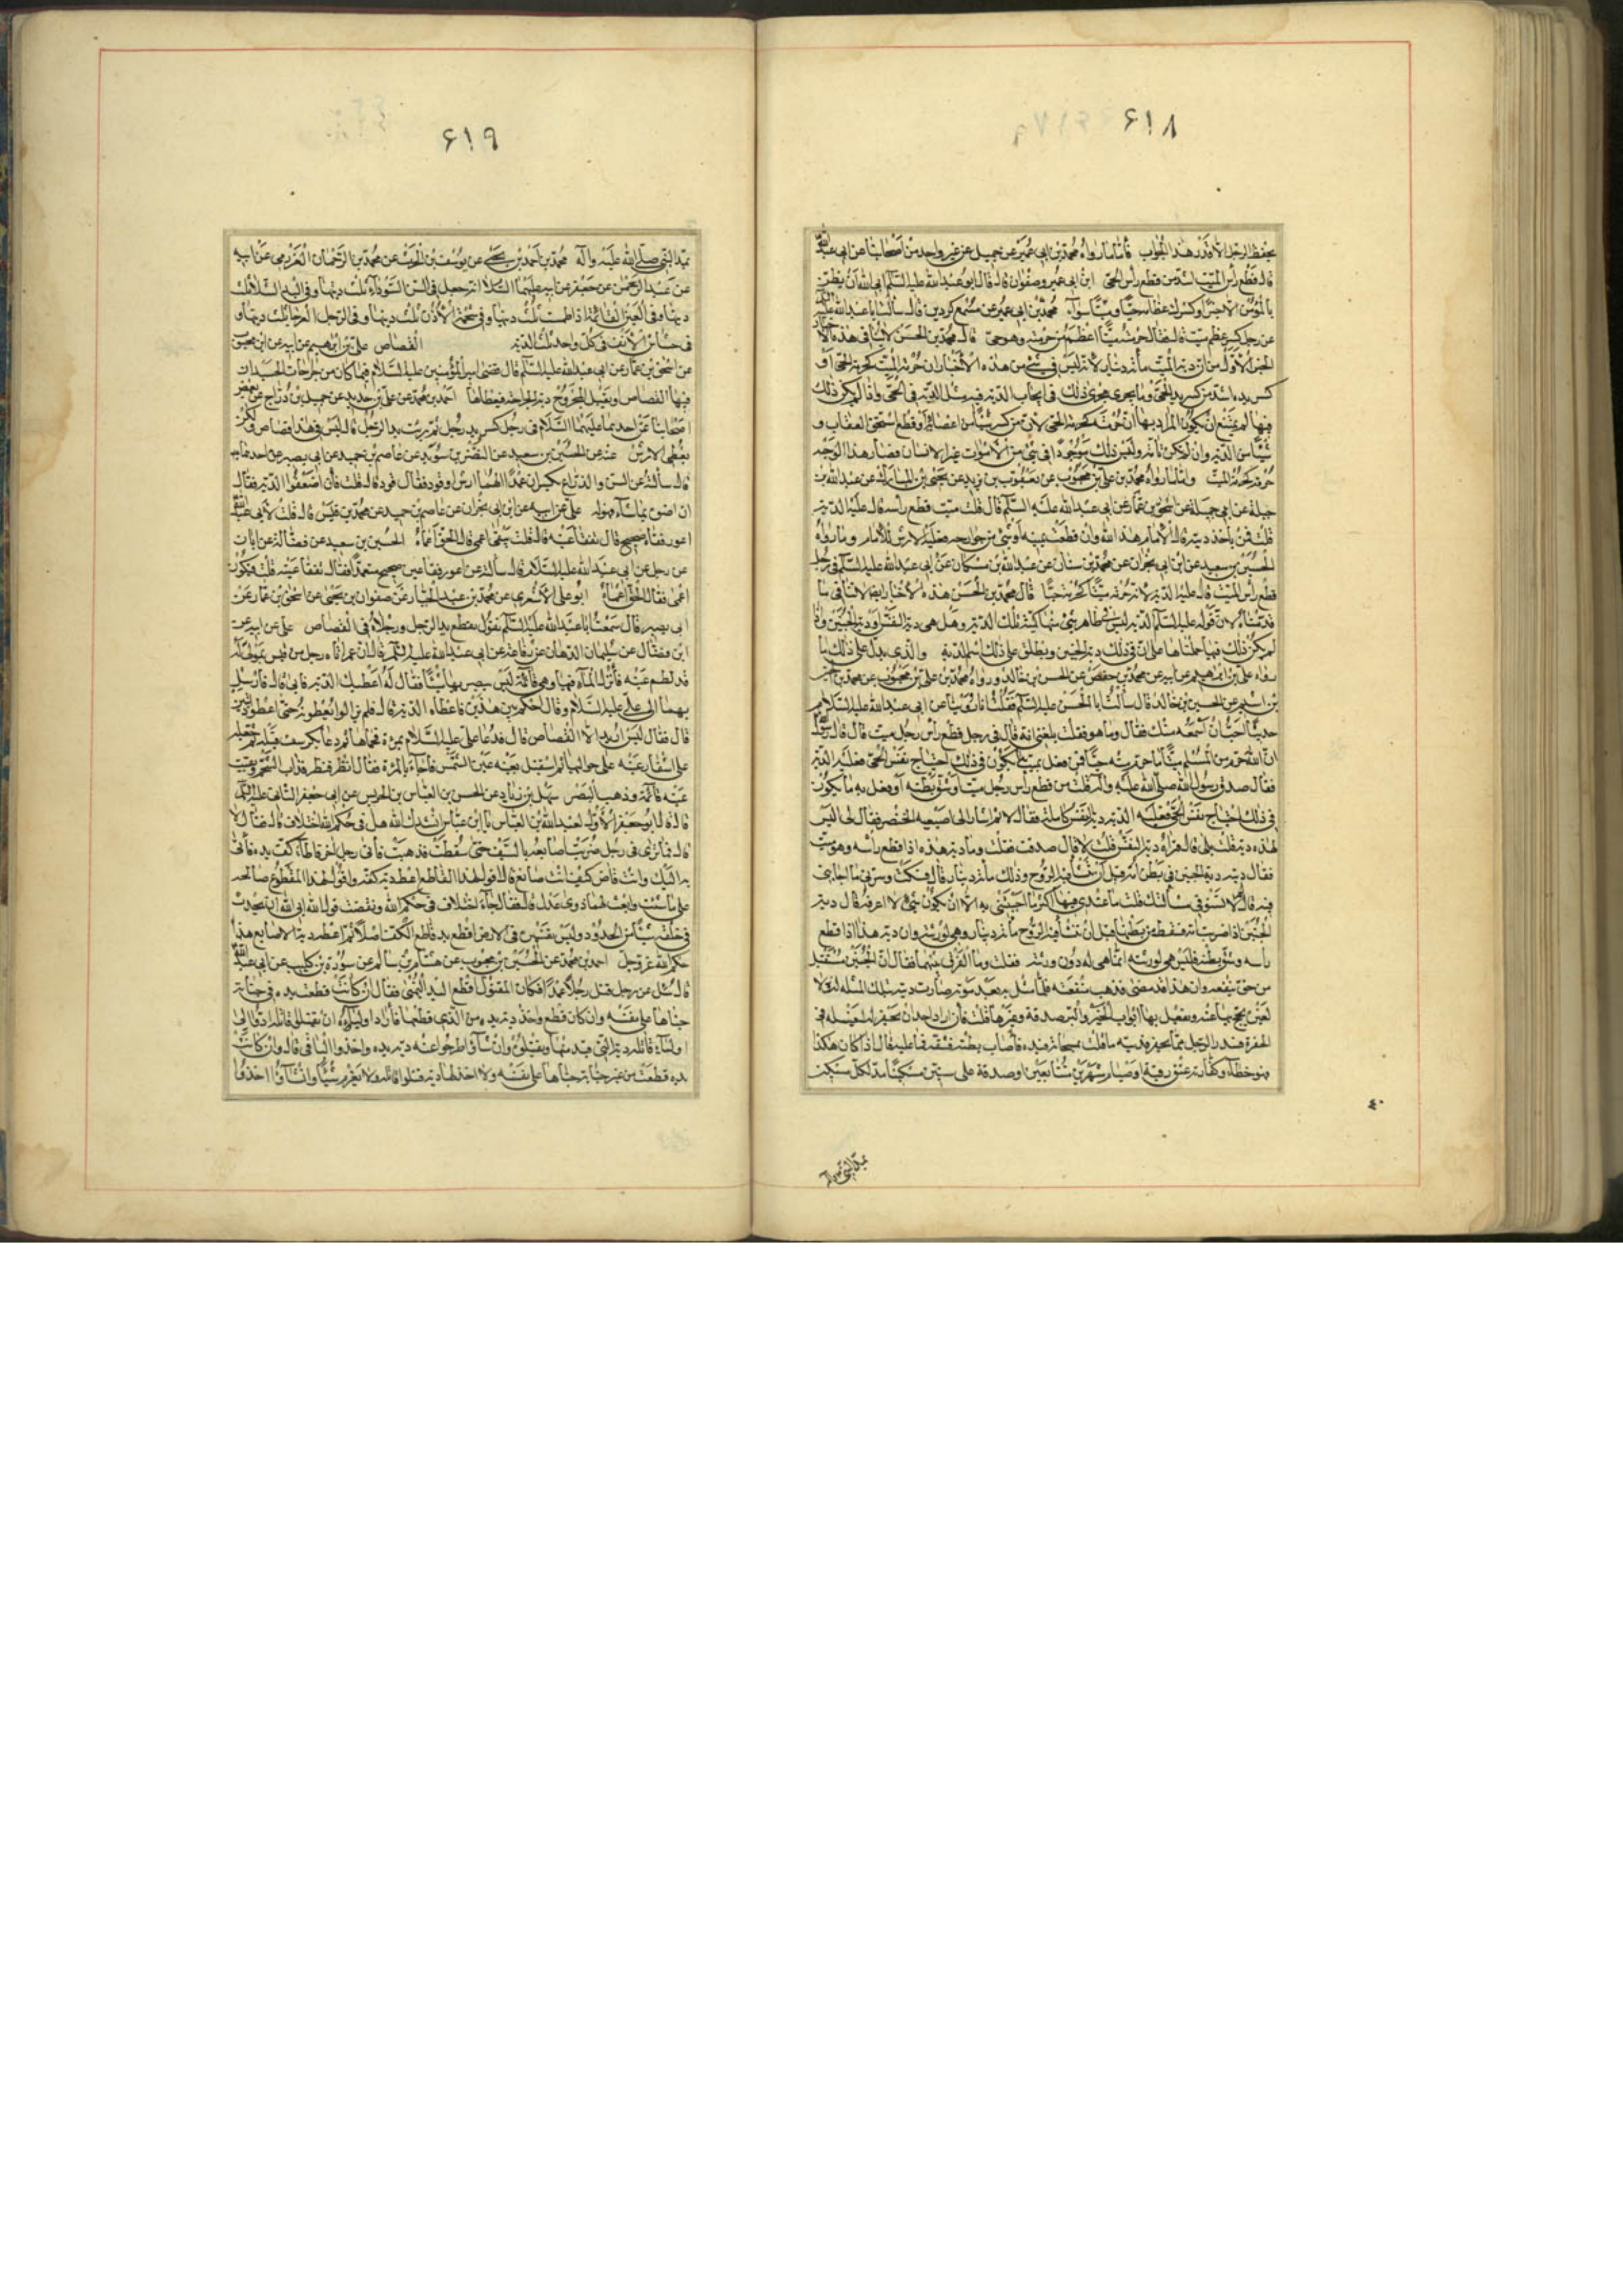 ۶۱۸
يحفظ الرجل الا قدر هذا الجواب فاما ما رواه محمد بن ابى عمير عن جميل عن غير واحد من اصحابنا عن ابى عبد الله
قال قطع راس الميت اشد من قطع راس الحى ابن ابى عمير وصفوان قال قال ابو عبد الله عليه السلم ابى الله ان يظن
بالمؤمن الا خيرا وكسرك عظامه حيا وميتا سواء محمد بن ابى عمير عن مسمع كردين قال سالت ابا عبد الله عليه
عن رجل كسر عظم ميت قال فقال حرمته ميتا اعظم من حرمته وهو حى قال محمد بن الحسن لا ينافى هذه الاخبار
الخبر الاول من ان دية الميت مائة دينار لانه ليس فى شئ من هذه الاخبار ان حرمة الميت كحرمة الحى او
كسر يده اشد من كسر يد الحى وما يجرى مجرى ذلك فى ايجاب الدية فيه مثل الدية فى الحى واذا لم يكن ذلك
فيها لم يمتنع ان يكون المراد بها ان حرمته كحرمة الحى لان من كسر شيئا من اعضائه او قطع استحق العقاب و
شيئا من الدية وان لم يكن تامة وليس ذلك بموجود فى شئ من الاموات غير الانسان فصار هذا الوجه
حرمته كحرمة الميت واما ما رواه محمد بن على بن محبوب عن يعقوب بن يزيد عن يحيى بن المبارك عن عبد الله بن
جبلة عن ابى جميلة عن اسحق بن عمار عن ابى عبد الله عليه السلم قال قلت ميت قطع راسه قال عليه الدية
قلت فمن ياخذ ديته قال الامام هذا لله وان قطعت يمينه او شئ من جوارحه فعليه الارش للامام وما رواه
الحسين بن سعيد عن ابن ابى نجران عن محمد بن سنان عن عبد الله بن مسكان عن ابى عبد الله عليه السلم فى رجل
قطع راس الميت قال عليه الدية لان حرمته ميتا كحرمته حيا قال محمد بن الحسن هذه الاخبار ايضا لا تنافى ما
قدمناه لان قوله عليه السلم الدية ليس فى ظاهر شئ منها كمية تلك الدية وهل هى دية النفس او دية الجنين واذا
لم يكن ذلك فيها حملناها على ان فى ذلك دية الجنين ويطلق على ذلك اسم الدية والذى يدل على ذلك ما
رواه على بن ابراهيم عن ابيه عن محمد بن حفص عن الحسين بن خالد ورواه محمد بن على بن محبوب عن محمد بن الحسين
بن اسلم عن الحسين بن خالد قال سالت ابا الحسن عليه السلم فقلت انا روينا عن ابى عبد الله عليه السلام
حديثا احب ان اسمعه منك فقال وما هو فقلت بلغنى انه قال فى رجل قطع راس رجل ميت قال قال رسول الله
ان الله حرم من المسلم ميتا ما حرم منه حيا فمن فعل بميت ما يكون فى ذلك اجتياح نفس الحى فعليه الدية
فقال صدق رسول الله صلى الله عليه وآله قلت من قطع راس رجل ميت او شق بطنه او فعل به ما يكون
فى ذلك اجتياح نفس الحى فعليه الدية دية النفس كاملة فقال لا ثم اشار الى اصبعيه الخنصر فقال لى اليس
لهذه دية قلت بلى قال فتراه دية النفس قلت لا قال صدقت فقلت وما دية هذه اذا قطع راسه وهو ميت
فقال ديته دية الجنين فى بطن امه قبل ان تنشا فيه الروح وذلك مائة دينار قال فسكت وسرنى ما اجابنى
فيه قال لم لا تستوفى مسالتك قلت ما عندى فيها اكثر مما اجبتنى به الا ان يكون شئ لا اعرفه قال دية
الجنين اذا ضربت امه فسقط من بطنها قبل ان تنشا فيه الروح مائة دينار وهى لورثته وان دية هذا اذا قطع
راسه وشق بطنه فليس هى لورثته انما هى له دون ورثته فقلت وما الفرق بينهما فقال ان الجنين مستقبل
مرجو نفعه وان هذا قد مضى فذهب منفعته فلما مثل به بعد موته صارت ديته بتلك المثلة له لا
لغيره يحج بها عنه ويفعل بها ابواب الخير والبر صدقة وغيرها قلت فان اراد احد ان يحفر له ليغسله فى
الحفرة فسدر الرجل مما يحفر فديه مما قلت مسحاته فى يده فاصاب بطنه فشقه فما عليه قال اذا كان هكذا
فهو خطا وكفارته عتق رقبة او صيام شهرين متتابعين او صدقة على ستين مسكينا مد لكل مسكين
بمد النبى ص
۶۱۹
بمد النبى صلى الله عليه وآله محمد بن احمد بن يحيى عن يوسف بن الحرث عن محمد بن عبد الرحمان العزرمى عن ابيه
عن عبد الرحمن عن جعفر عن ابيه عليهما السلام انه جعل فى السن السوداء ثلث ديتها وفى اليد الشلاء ثلث
ديتها وفى العين القائمة اذا طمست ثلث ديتها وفى شحمة الاذن ثلث ديتها وفى الرجل العرجاء ثلث ديتها و
فى خشاش الانف فى كل واحد ثلث الدية القصاص على بن ابراهيم عن ابيه عن ابن محبوب
عن اسحق بن عمار عن ابى عبد الله عليه السلم قال قضى امير المؤمنين عليه السلام فيما كان من جراحات الجسد ان
فيها القصاص او يقبل المجروح دية الجراحة فيعطاها احمد بن محمد عن على بن حديد عن جميل بن دراج عن بعض
اصحابنا عن احدهما عليهما السلام فى رجل كسر يد رجل ثم برئت يد الرجل قال ليس فى هذا قصاص ولكن
يعطى الارش عنه عن الحسين بن سعيد عن النضر بن سويد عن عاصم بن حميد عن ابى بصير عن احدهما
قال سالته عن السن والذراع يكسران عمدا الهما ارش او قود فقال قود قال قلت فان اضعفوا الدية فقال
ان ارضوه بما شاء فهو له على عن ابيه عن ابن ابى نجران عن عاصم بن حميد عن محمد بن قيس قال قلت لابى جعفر
اعور فقا عين صحيح قال تفقا عينه قال قلت يبقى اعمى قال الحق اعماه الحسين بن سعيد عن فضالة عن ابان
عن رجل عن ابى عبد الله عليه السلام قال سالته عن اعور فقا عين صحيح متعمدا فقال تفقا عينه قلت فيكون
اعمى فقال الحق اعماه ابو على الاشعرى عن محمد بن عبد الجبار عن صفوان بن يحيى عن اسحق بن عمار عن
ابى بصير قال سمعت ابا عبد الله عليه السلم يقول تقطع يد الرجل ورجلاه فى القصاص على عن ابيه عن
ابن فضال عن سليمان الدهان عن رفاعة عن ابى عبد الله عليه السلم قال ان عمر اتاه رجل من قيس بمولى له
قد لطم عينه فانزل الماء فيها وهى قائمة ليس يبصر بها شيئا فقال له اعطيك الدية فابى قال فارسل
بهما الى على عليه السلام وقال احكم بين هذين فاعطاه الدية قال فلم يزالوا يعطونه حتى اعطوه ديتين
قال فقال ليس اريد الا القصاص قال فدعا على عليه السلام بمراة فحماها ثم دعا بكرسف فبله ثم جعله
على اشفار عينيه على حواليها ثم استقبل بعينه عين الشمس قال وجاء بالمراة فقال انظر فنظر فذاب الشحم وبقيت
عينه قائمة وذهب البصر سهل بن زياد عن الحسن بن العباس بن الحريش عن ابى جعفر الثانى عليه السلم
قال قال ابو جعفر الاول لعبد الله بن العباس يا ابن عباس انشدك الله هل فى حكم الله اختلاف قال فقال لا
قال فما ترى فى رجل ضربت اصابعه بالسيف حتى سقطت فذهبت فاتى رجل اخر فاطار كف يده فاتى
به اليك وانت قاض كيف انت صانع قال اقول لهذا القاطع اعطه دية كفه واقول لهذا المقطوع صالحه
على ما شئت وابعث لهما ذوى عدل قال فقال جاء اختلاف فى حكم الله ونقضت قول الله ابى الله ان يحدث
فى خلقه شيئا من الحدود وليس تفسيره فى الارض اقطع يد قاطع الكف اصلا ثم اعطه دية الاصابع هذا
حكم الله عز وجل احمد بن محمد عن الحسين بن محبوب عن هشام بن سالم عن سورة بن كليب عن ابى عبد الله
قال سئل عن رجل قتل رجلا عمدا فكان المقتول اقطع اليد اليمنى فقال ان كانت قطعت يده فى جناية
جناها على نفسه وان كان قطع واخذ دية يده من الذى قطعها فان اراد اولياؤه ان يقتلوا قاتله ادوا الى
اولياء قاتله دية التى قيد منها ويقتلوه وان شاؤا طرحوا عنه دية يده واخذوا الباقى قال وان كانت
يده قطعت من غير جناية جناها على نفسه ولا اخذ لها دية قتلوا قاتله ولا يغرم شيئا وان شاؤا اخذوا